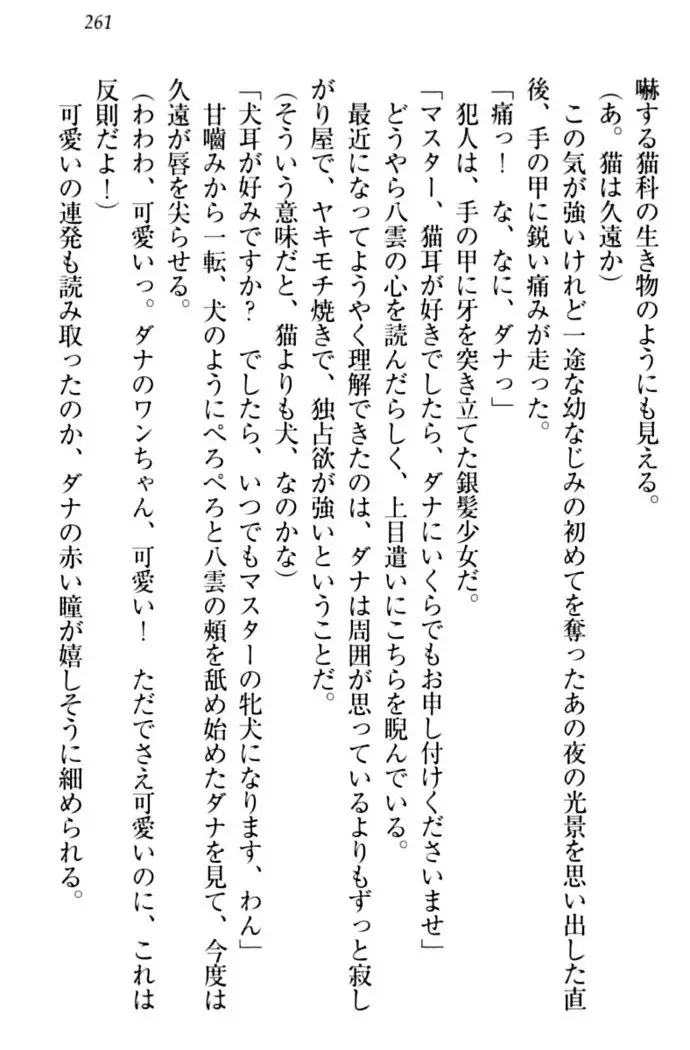 261
嚇する猫科の生き物のようにも見える。
(あ。猫は久遠か)
この気が強いけれど一途な幼なじみの初めてを奪ったあの夜の光景を思い出した直
後、手の甲に鋭い痛みが走った。
「痛っ！　な、なに、ダナっ」
犯人は、手の甲に牙を突き立てた銀髪少女だ。
「マスター、猫耳が好きでしたら、ダナにいくらでもお申し付けくださいませ」
どうやら八雲の心を読んだらしく、上目遣いにこちらを睨んでいる。
最近になってようやく理解できたのは、ダナは周囲が思っているよりもずっと寂し
がり屋で、ヤキモチ焼きで、独占欲が強いということだ。
(そういう意味だと、猫よりも犬、なのかな)
「犬耳が好みですか？　でしたら、いつでもマスターの牝犬になります、わん」
甘嚙みから一転、犬のようにぺろぺろと八雲の頰を舐め始めたダナを見て、今度は
久遠が唇を尖らせる。
(わわわ、可愛いっ。ダナのワンちゃん、可愛い！　ただでさえ可愛いのに、これは
反則だよ！)
可愛いの連発も読み取ったのか、ダナの赤い瞳が嬉しそうに細められる。